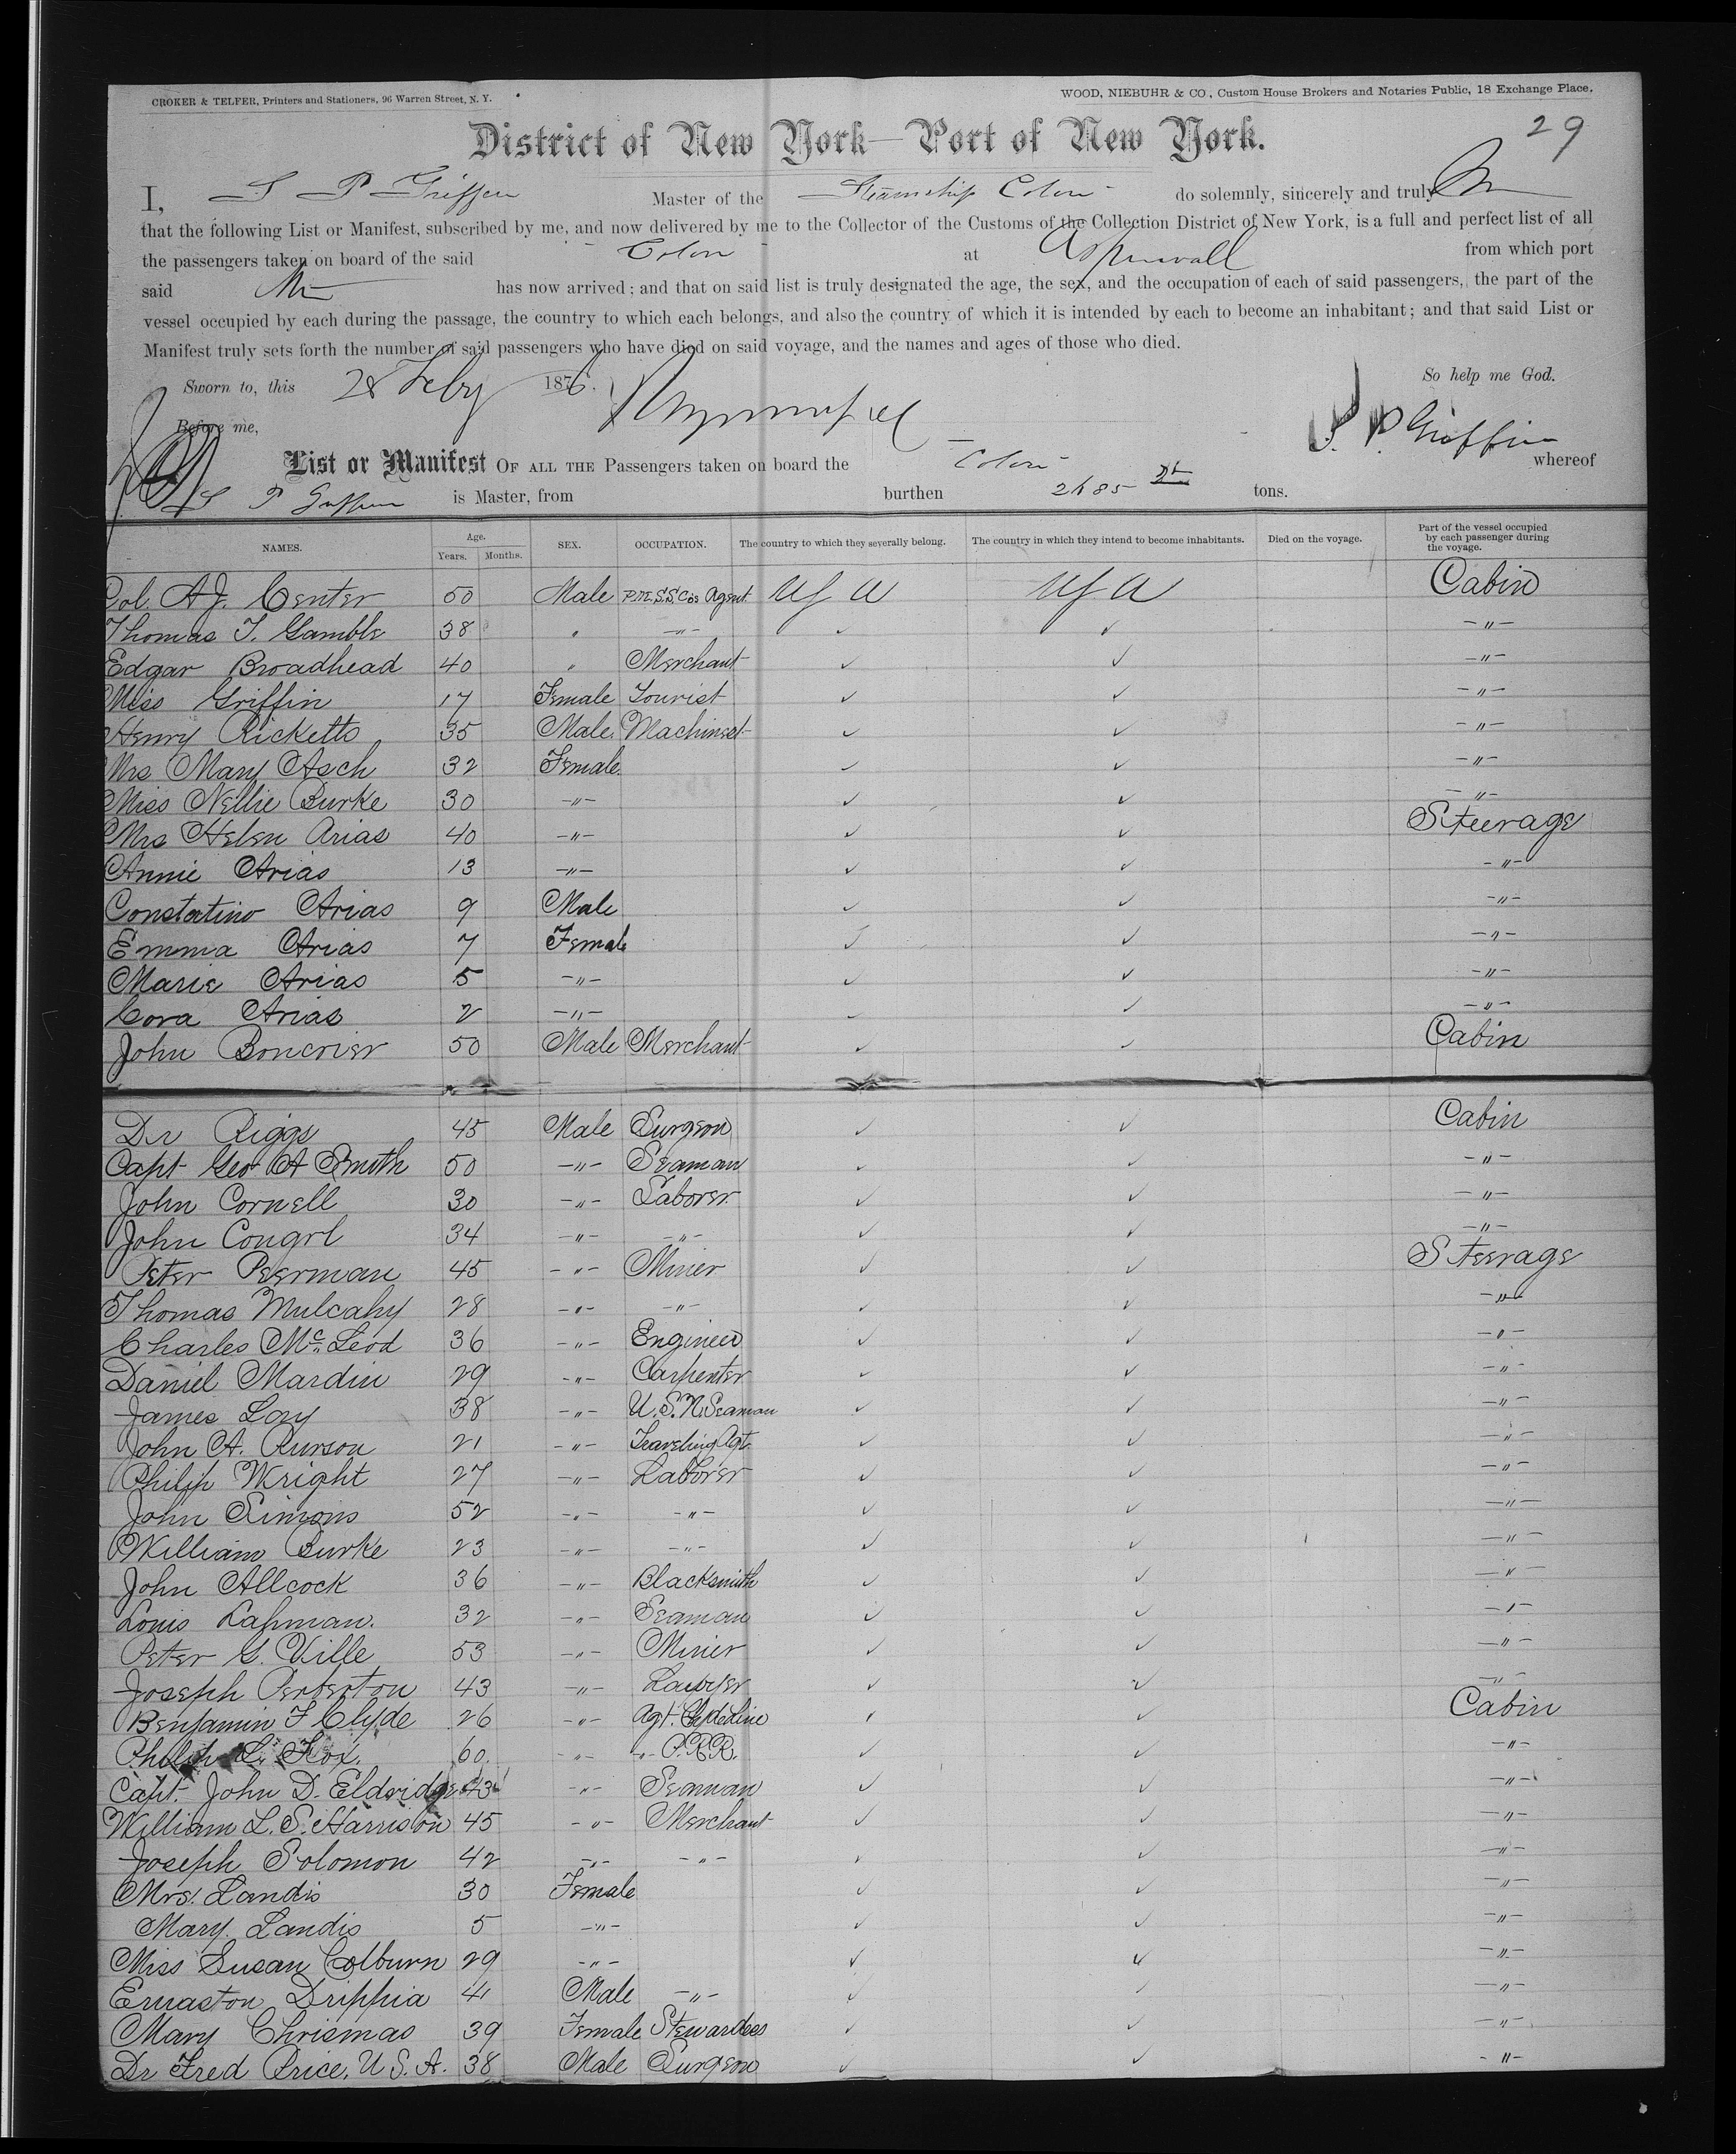 CROKER & TELFER, Printers and Stationers, 96 Warren Street, N. Y.
WOOD, NIEBUHR & CO., Custom House Brokers and Notaries Public, 18 Exchange Place.
29
District of New York—Port of New York.
I, S P Griffin Master of the Steamship Colon do solemnly, sincerely and truly
that the following List or Manifest, subscribed by me, and now delivered by me to the Collector of the Customs of the Collection District of New York, is a full and perfect list of all
the passengers taken on board of the said Colon at Aspinwall from which port
said has now arrived; and that on said list is truly designated the age, the sex, and the occupation of each of said passengers, the part of the
vessel occupied by each during the passage, the country to which each belongs, and also the country of which it is intended by each to become an inhabitant; and that said List or
Manifest truly sets forth the number of said passengers who have died on said voyage, and the names and ages of those who died.
Sworn to, this 28 Feby 1876. So help me God.
Before me, S. P. Griffin
List or Manifest OF ALL THE Passengers taken on board the Colon whereof
S P Griffin is Master, from burthen 2685 tons.
NAMES. Age. Years. Months. SEX. OCCUPATION. The country to which they severally belong. The country in which they intend to become inhabitants. Died on the voyage. Part of the vessel occupied by each passenger during the voyage.
Col. A J. Center 50 Male P.M.S.S.Cos Agent U S A U S A Cabin
Thomas T. Gamble 38 " -"- ✓ ✓ -"-
Edgar Broadhead 40 " Merchant ✓ ✓ -"-
Miss Griffin 17 Female Tourist ✓ ✓ -"-
Henry Ricketts 35 Male Machinest ✓ ✓ -"-
Mrs Mary Asch 32 Female ✓ ✓ -"-
Miss Nellie Burke 30 -"- ✓ ✓ -"-
Mrs Helen Arias 40 -"- ✓ ✓ Steerage
Annie Arias 13 -"- ✓ ✓ -"-
Constatino Arias 9 Male ✓ ✓ -"-
Emma Arias 7 Female ✓ ✓ -"-
Marie Arias 5 -"- ✓ ✓ -"-
Cora Arias 2 -"- ✓ ✓ -"-
John Boncrier 50 Male Merchant ✓ ✓ Cabin
Dr Riggs 45 Male Surgeon ✓ ✓ Cabin
Capt Geo A Smith 50 -"- Seaman ✓ ✓ -"-
John Cornell 30 -"- Laborer ✓ ✓ -"-
John Congrl 34 -"- -"- ✓ ✓ -"-
Peter Peerman 45 -"- Miner ✓ ✓ Steerage
Thomas Mulcahy 28 -"- -"- ✓ ✓ -"-
Charles McLeod 36 -"- Engineer ✓ ✓ -"-
Daniel Mardin 29 -"- Carpenter ✓ ✓ -"-
James Lory 38 -"- U.S.N. Seaman ✓ ✓ -"-
John A. Rurson 21 -"- Traveling Agt. ✓ ✓ -"-
Philip Wright 27 -"- Laborer ✓ ✓ -"-
John Simons 52 -"- -"- ✓ ✓ -"-
William Burke 23 -"- -"- ✓ ✓ -"-
John Allcock 36 -"- Blacksmith ✓ ✓ -"-
Louis Lapman. 32 -"- Seaman ✓ ✓ -"-
Peter G. Ville 53 -"- Miner ✓ ✓ -"-
Joseph Perberton 43 -"- Lawyer ✓ ✓ -"-
Benjamin F Clyde 26 -"- Agt. Clyde Line ✓ ✓ Cabin
Philip L. Fox. 60. -"- -"- P.R.R. ✓ ✓ -"-
Capt. John D. Eldridge 43 -"- Seaman ✓ ✓ -"-
William L. S. Harrison 45 -"- Merchant ✓ ✓ -"-
Joseph Solomon 42 -"- -"- ✓ ✓ -"-
Mrs. Landis 30 Female ✓ ✓ -"-
Mary Landis 5 -"- ✓ ✓ -"-
Miss Susan Colburn 29 -"- ✓ ✓ -"-
Ernaston Drippia 41 Male -"- ✓ ✓ -"-
Mary Chrismas 39 Female Stewardess ✓ ✓ -"-
Dr Fred Price, U.S.A. 38 Male Surgeon ✓ ✓ -"-